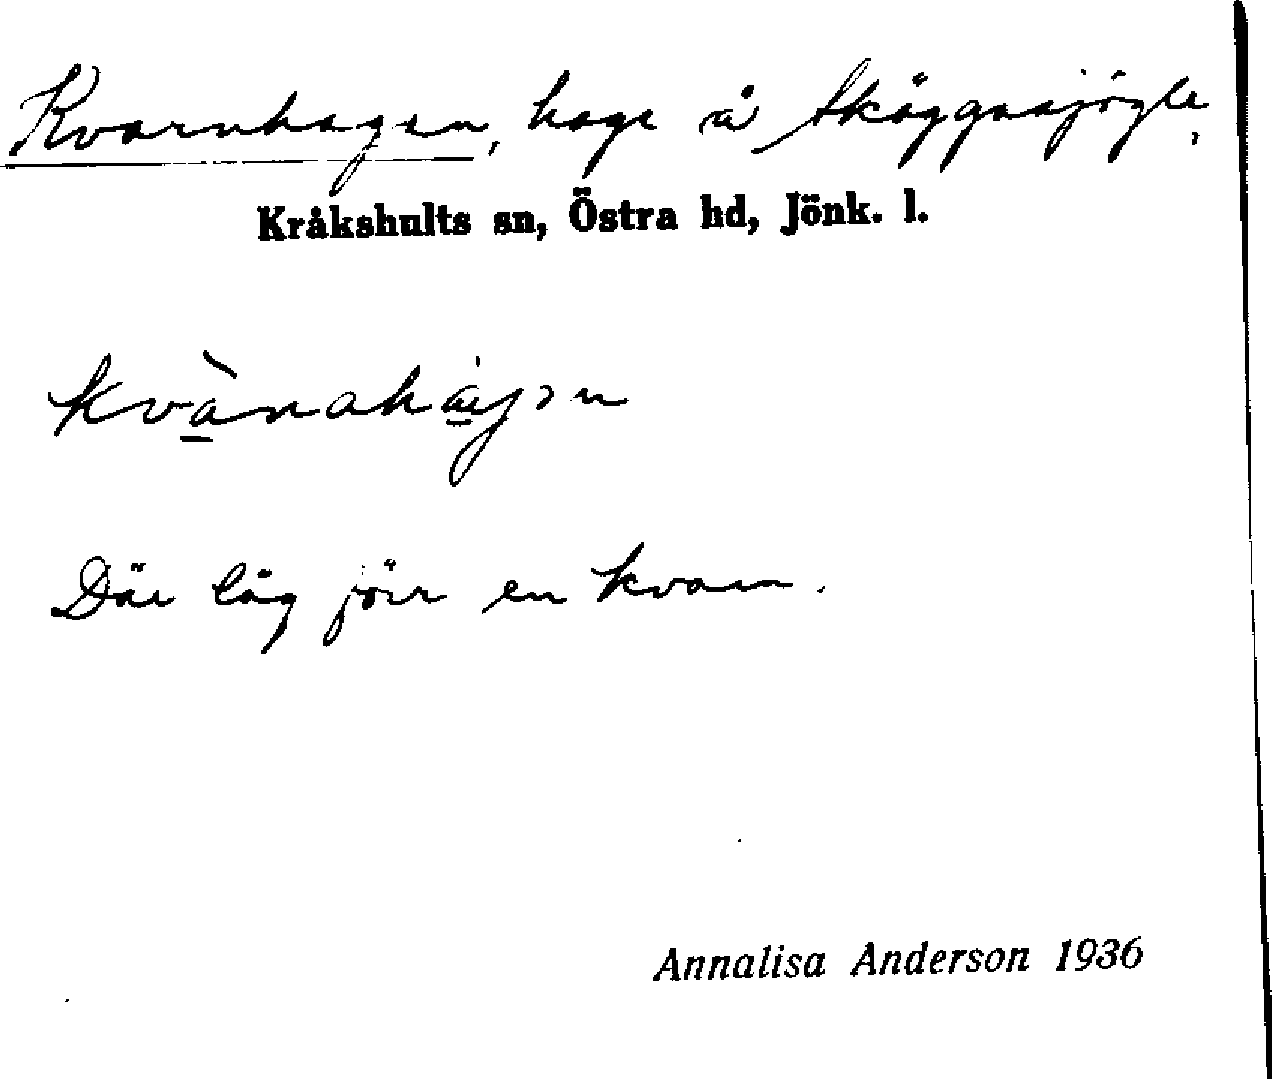 Kvarnhagen, hage å Skäggasjögle,
Kråkshults sn, Östra hd, Jönk. l.
kvànahágən
Där låg förr en kvarn.
Annalisa Anderson 1936